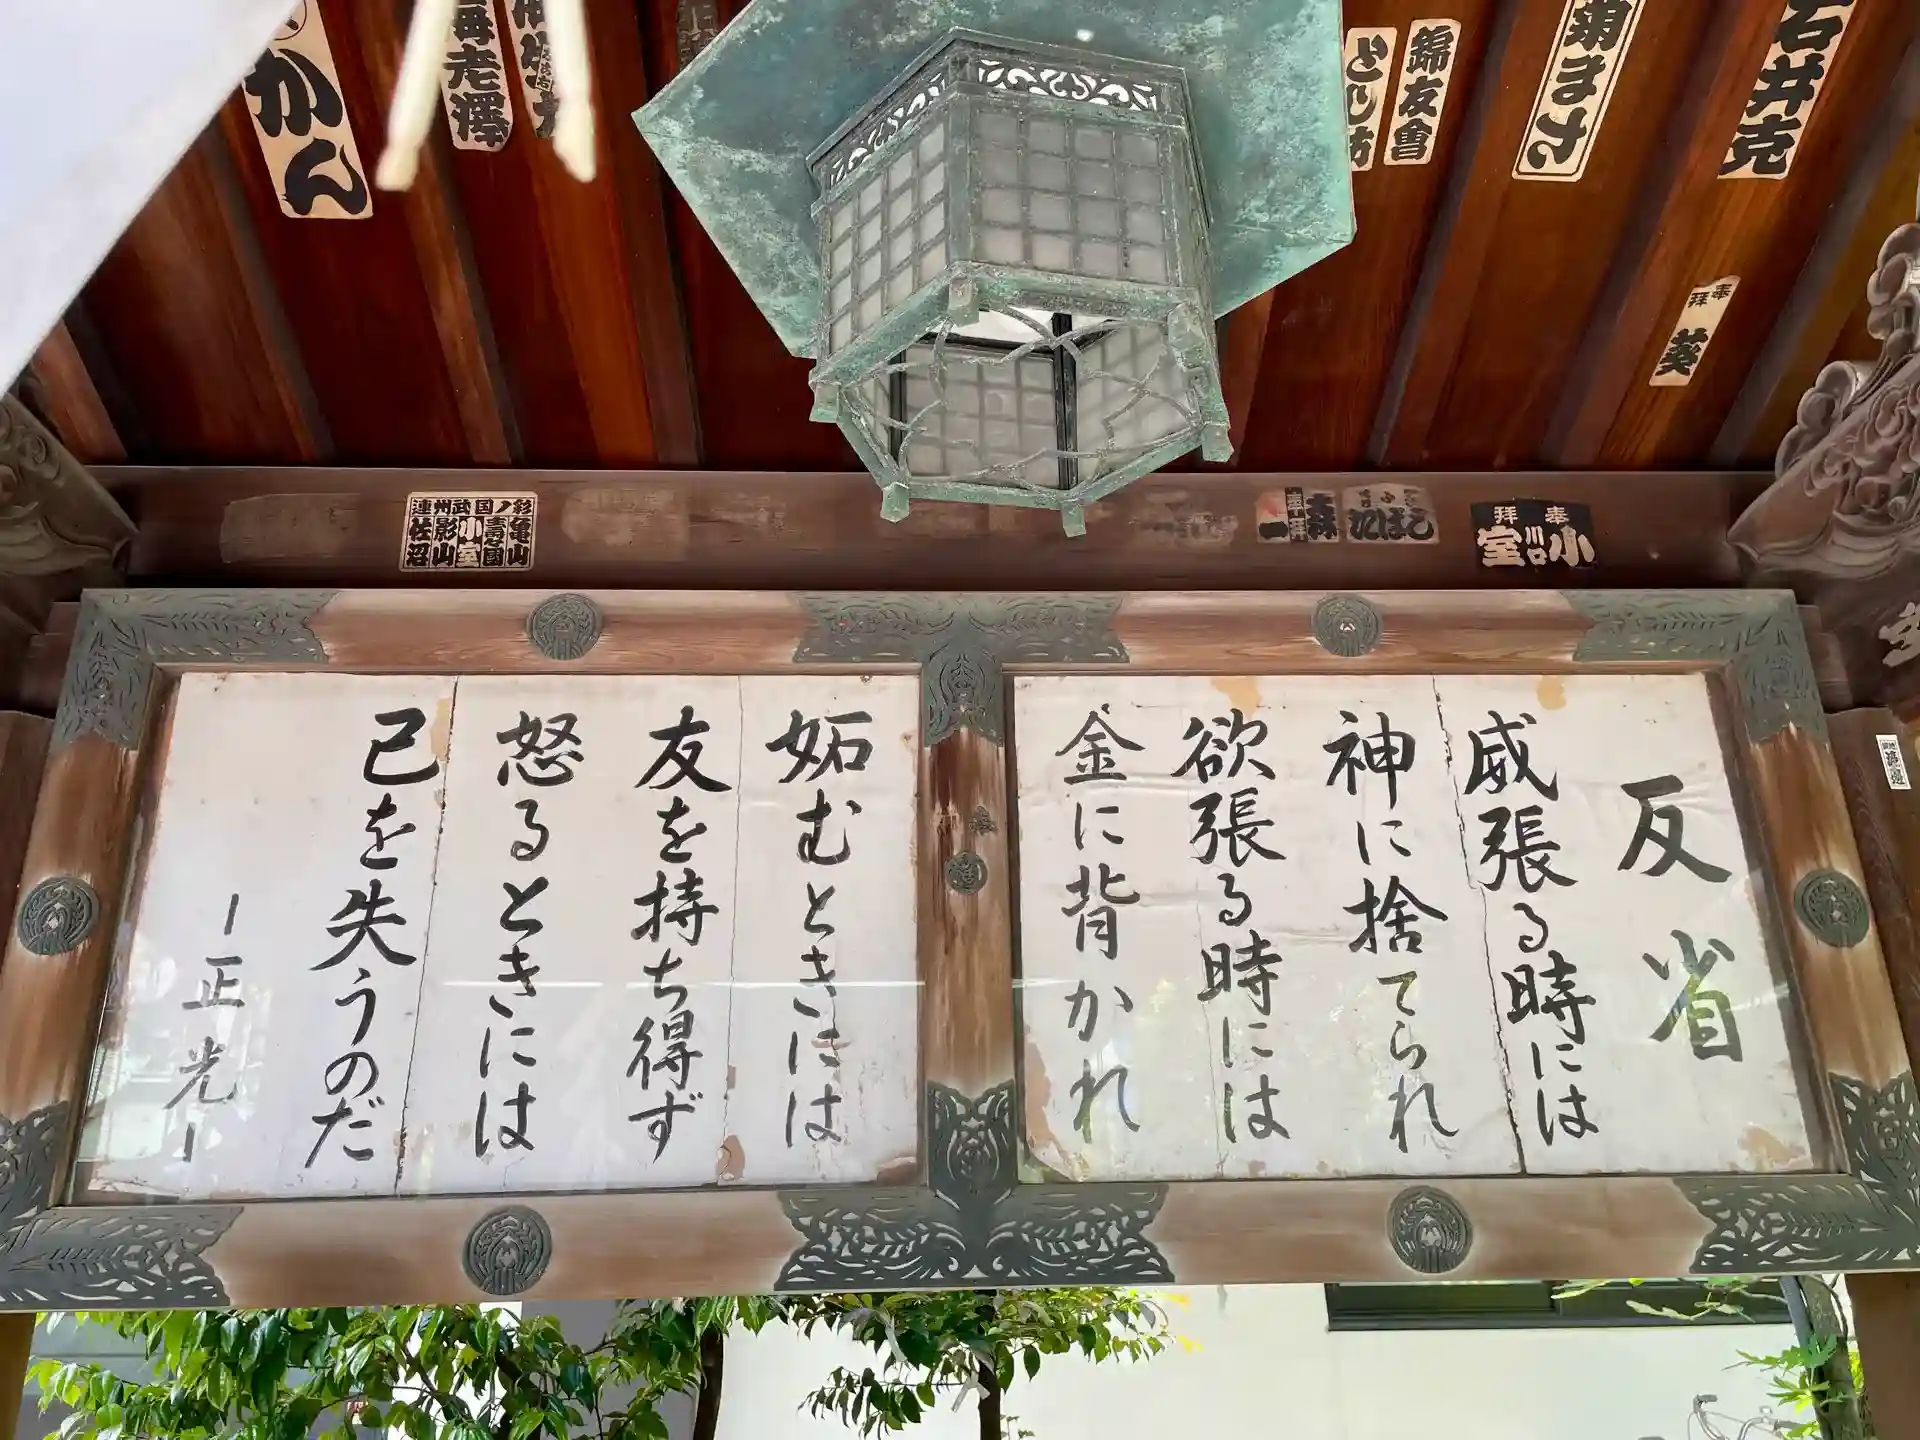 反省
威張る時には
神に捨てられ
欲張る時には
金に背かれ
妬むときには
友を持ち得ず
怒るときには
己を失うのだ
ー正光ー
石井克
菊まさ
錦友會
かん
海老澤
奉拝
葵
奉拝
川口
小室
大森
一
連州武国ノ彩
亀山
壽らく園
小室
影山
佐沼